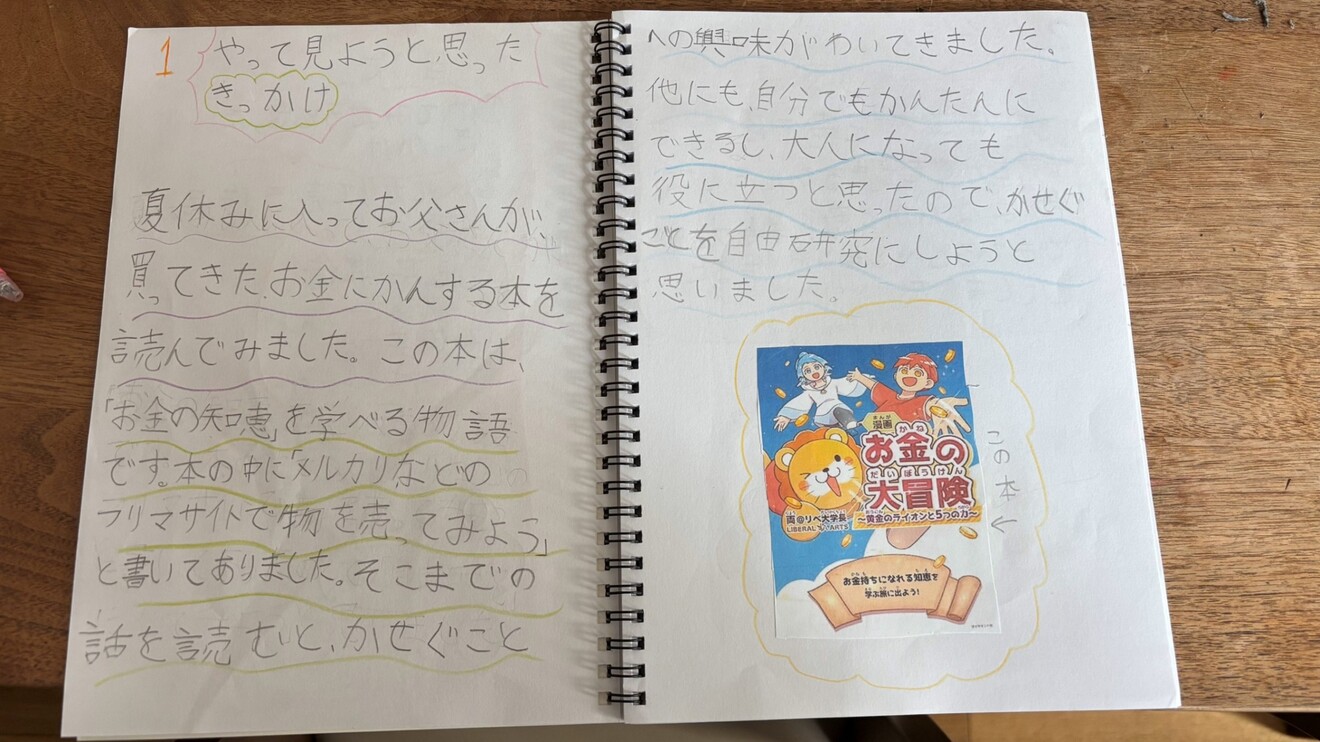 1
やって見ようと思った
きっかけ
夏休みに入ってお父さんが、
買ってきた、お金にかんする本を
読んでみました。この本は、
「お金の知恵」を学べる物語
です。本の中に「メルカリなどの
フリマサイトで物を売ってみよう」
と書いてありました。そこまでの
話を読むと、かせぐこと
への興味がわいてきました。
他にも、自分でもかんたんに
できるし、大人になっても
役に立つと思ったので、かせぐ
ことを自由研究にしようと
思いました。
まんが
漫画
かね
お金の
だいぼうけん
大冒険
両@リベ大学長
LIBERAL ARTS
〜黄金のライオンと5つの力〜
お金持ちになれる知恵を
学ぶ旅に出よう!
この本